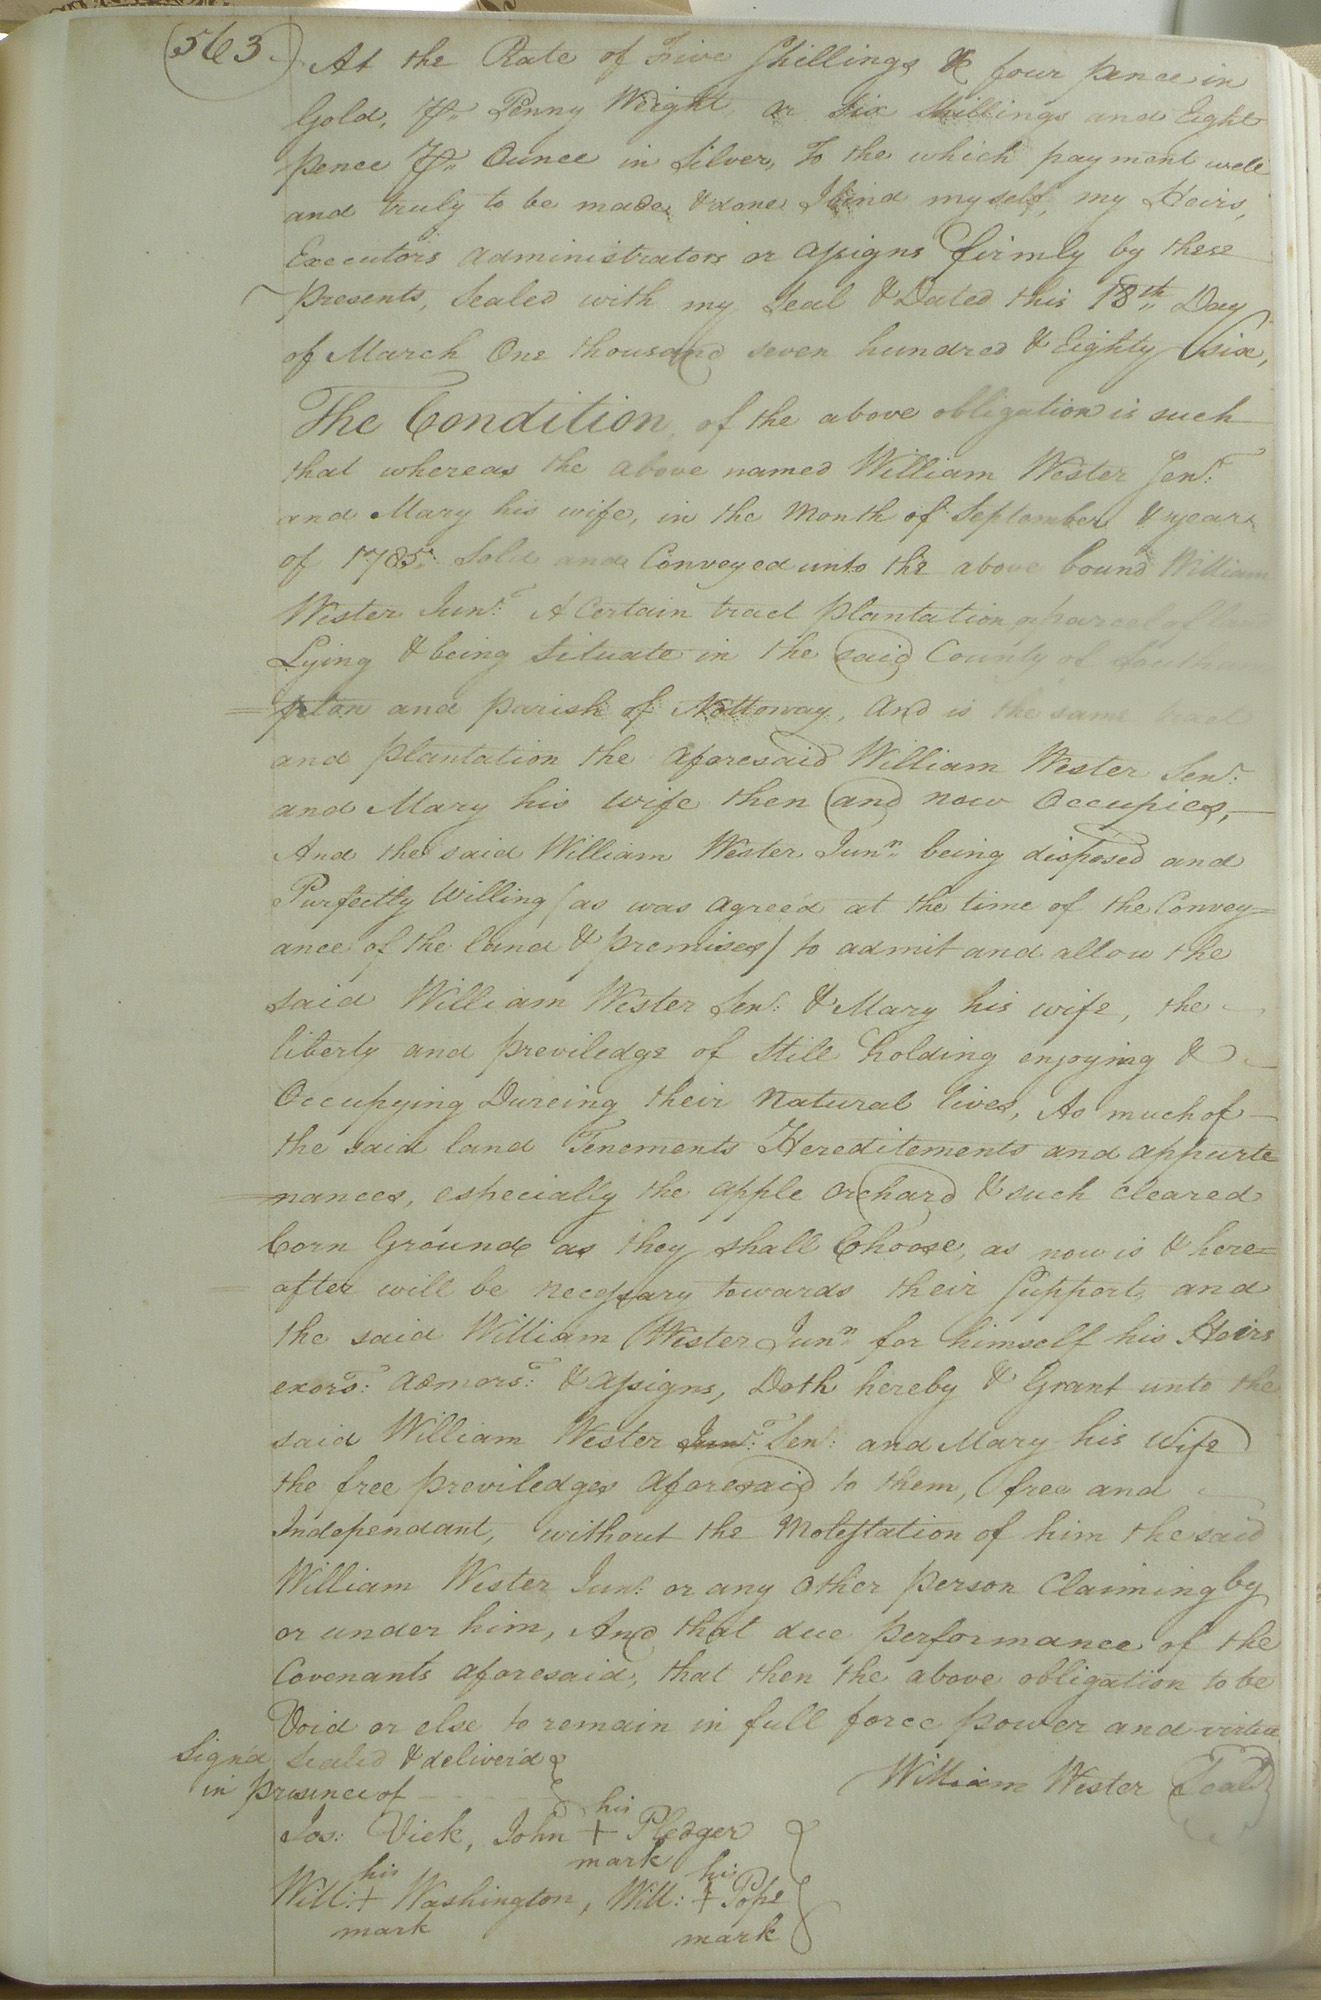 563
At the Rate of Five Shillings & four pence in
Gold, ₱r. Penny Weight or Six Shillings and Eight
pence ₱r. Ounce in Silver, To the which payment well
and truly to be made & done I bind myself, my Heirs,
Executors administrators or assigns firmly by these
presents, Sealed with my Seal & Dated this 18th Day
of March One thousand seven hundred & Eighty six,
The Condition, of the above obligation is such
that whereas the above named William Wester Senr.
and Mary his wife, in the Month of September & year
of 1785. Sold and Conveyed unto the above bound William
Wester Junr. A Certain tract plantation or parcel of land
Lying & being Situate in the said County of Southam
=pton and parish of Nottoway, And is the same tract
and plantation the aforesaid William Wester Senr.
and Mary his wife then and now Occupies,
And the said William Wester Junr. being disposed and
Purfectly Willing (as was agreed at the time of the Convey=
ance of the land & premises) to admit and allow the
said William Wester Senr. & Mary his wife, the
liberty and previledge of Still holding enjoying &
Occupying Dureing their Natural lives, As much of
the said land Tenements Hereditements and appurte
=nances, especially the apple orchard & such cleared
Corn Ground as they shall Choose, as now is & here=
=after will be necessary towards their Support, and
the said William Wester Junr. for himself his Heirs
exors: admors: & assigns, Doth hereby & Grant unto the
said William Wester Junr: Senr: and Mary his Wife
the free previledges aforesaid to them, free and
Independant, without the Molestation of him the said
William Wester Junr. or any other person Claiming by
or under him, And that due performance of the
Covenants aforesaid, that then the above obligation to be
Void or else to remain in full force power and virtue
Sign'd Sealed & deliver'd
in presence of
William Wester Seal
his
Jos: Vick, John + Pledger
mark
his his
Will: + Washington, Will: + Pope
mark mark